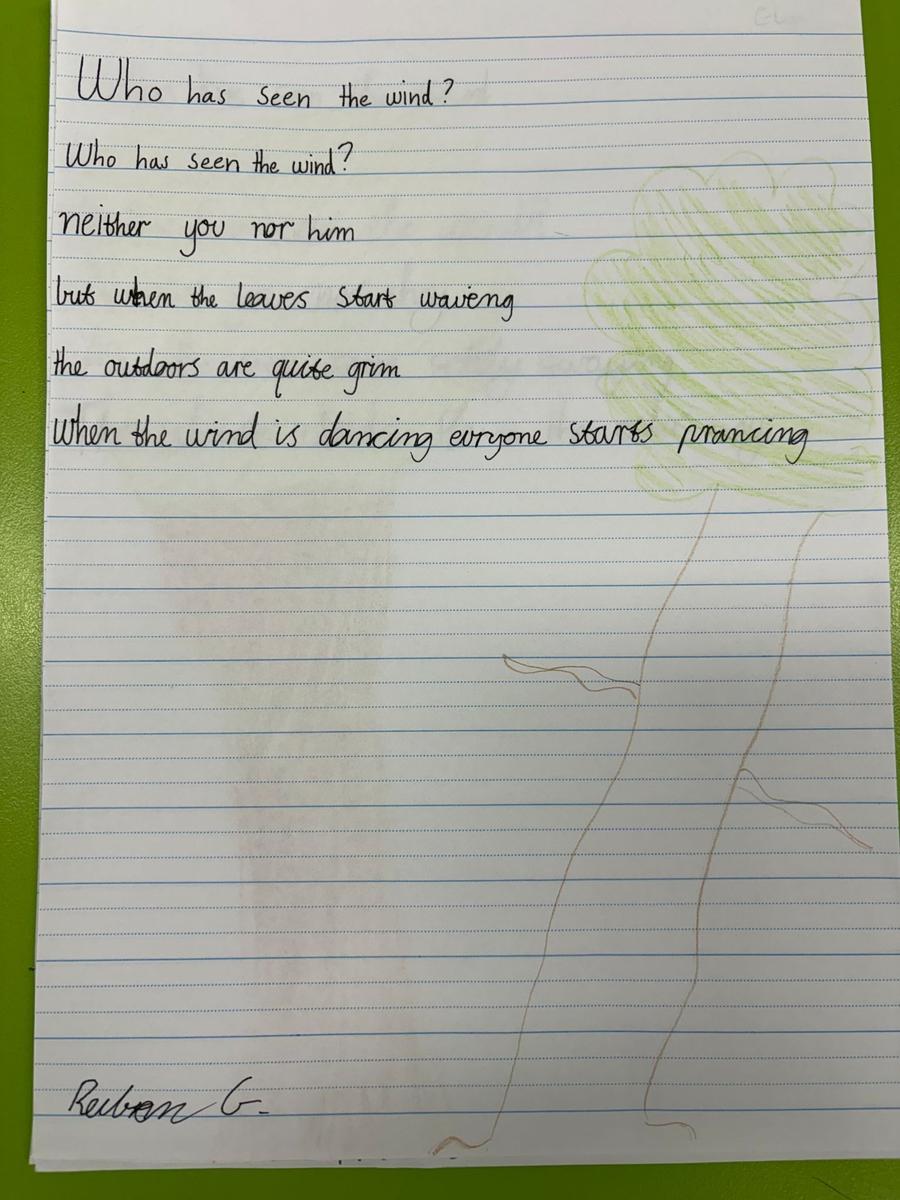 Who has seen the wind?
Who has seen the wind?
neither you nor him
but when the leaves start waveing
the outdoors are quite grim
when the wind is dancing evryone starts prancing
Reuben G.